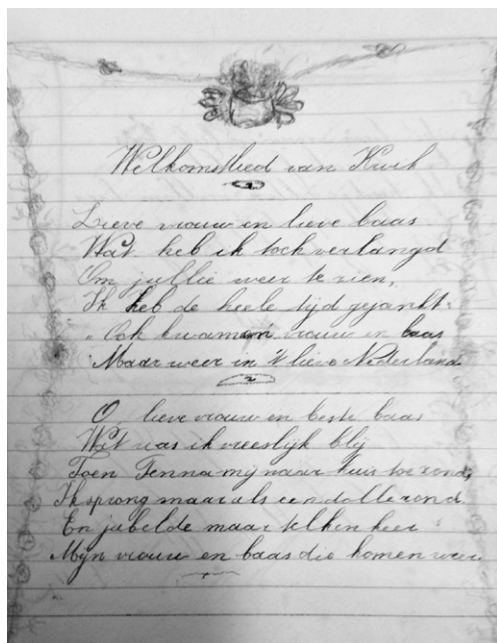 Welkomstlied van Kwik
1
Lieve vrouw en lieve baas
Wat heb ik toch verlangd
Om jullie weer te zien,
Ik heb de heele tijd gejankt.
Och kwamen vrouw en baas
Maar weer in 't lieve Nederland
2
O lieve vrouw en beste baas
Wat was ik vreeslijk blij
Toen Tenna mij naar huis toe
Ik sprong maar als een dolle rond
En jubelde maar telken keer
Mijn vrouw en baas die komen weer